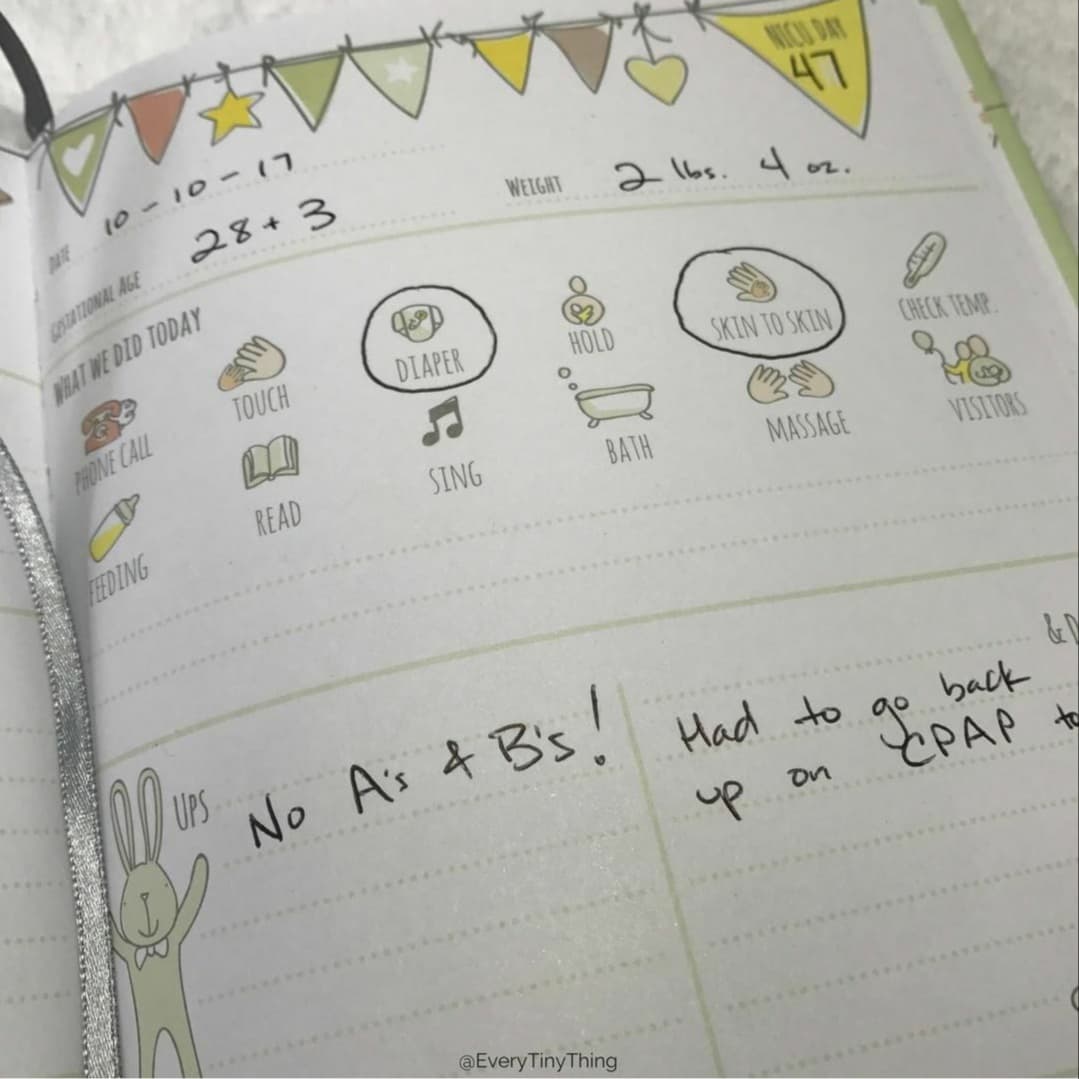 NICU DAY
47
DATE 10-10-17
WEIGHT 2 lbs. 4 oz.
GESTATIONAL AGE 28+3
WHAT WE DID TODAY
PHONE CALL
TOUCH
DIAPER
HOLD
SKIN TO SKIN
CHECK TEMP.
FEEDING
READ
SING
BATH
MASSAGE
VISITORS
UPS
No A's & B's!
Had to go back
up on CPAP
@EveryTinyThing